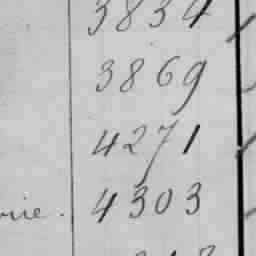 3834
3869
4271
4303